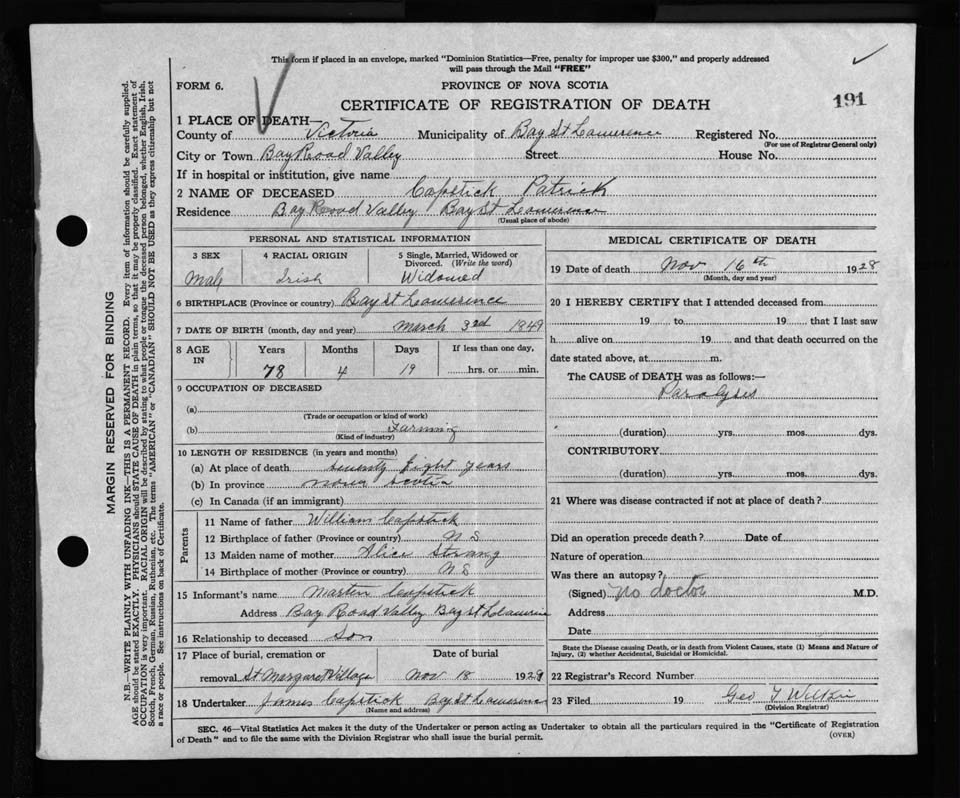 This form if placed in an envelope, marked "Dominion Statistics—Free, penalty for improper use $300," and properly addressed
will pass through the Mail "FREE"
FORM 6.
PROVINCE OF NOVA SCOTIA
CERTIFICATE OF REGISTRATION OF DEATH
191
1 PLACE OF DEATH—
County of Victoria Municipality of Bay St Lawrence Registered No.
(For use of Registrar General only)
City or Town Bay Road Valley Street House No.
If in hospital or institution, give name
2 NAME OF DECEASED Capstick Patrick
Residence Bay Road Valley Bay St Lawrence
(Usual place of abode)
PERSONAL AND STATISTICAL INFORMATION
3 SEX
Male
4 RACIAL ORIGIN
Irish
5 Single, Married, Widowed or
Divorced. (Write the word)
Widowed
6 BIRTHPLACE (Province or country) Bay St Lawrence
7 DATE OF BIRTH (month, day and year) March 3rd 1849
8 AGE
IN
Years Months Days If less than one day,
78 4 19 hrs. or min.
9 OCCUPATION OF DECEASED
(a)
(Trade or occupation or kind of work)
(b) Farming
(Kind of industry)
10 LENGTH OF RESIDENCE (in years and months)
(a) At place of death seventy Eight years
(b) In province nova scotia
(c) In Canada (if an immigrant)
Parents
11 Name of father William Capstick
12 Birthplace of father (Province or country) N S
13 Maiden name of mother Alice Strong
14 Birthplace of mother (Province or country) N S
15 Informant's name Marten Capstick
Address Bay Road Valley Bay St Lawrence
16 Relationship to deceased Son
17 Place of burial, cremation or Date of burial
removal St Margaret Village Nov 18 1929
18 Undertaker James Capstick Bay St Lawrence
(Name and address)
MEDICAL CERTIFICATE OF DEATH
19 Date of death Nov 16th 1928
(Month, day and year)
20 I HEREBY CERTIFY that I attended deceased from
19 to 19 that I last saw
h alive on 19 and that death occurred on the
date stated above, at m.
The CAUSE of DEATH was as follows:—
Paralyses
(duration) yrs. mos. dys.
CONTRIBUTORY
(duration) yrs. mos. dys.
21 Where was disease contracted if not at place of death?
Did an operation precede death? Date of
Nature of operation
Was there an autopsy?
(Signed) No doctor M.D.
Address
Date
State the Disease causing Death, or in death from Violent Causes, state (1) Means and Nature of
Injury, (2) whether Accidental, Suicidal or Homicidal.
22 Registrar's Record Number
23 Filed 19 Geo T Wilkie
(Division Registrar)
SEC. 46—Vital Statistics Act makes it the duty of the Undertaker or person acting as Undertaker to obtain all the particulars required in the "Certificate of Registration
of Death" and to file the same with the Division Registrar who shall issue the burial permit.
(OVER)
MARGIN RESERVED FOR BINDING
N.B.—WRITE PLAINLY WITH UNFADING INK—THIS IS A PERMANENT RECORD. Every item of information should be carefully supplied.
AGE should be stated EXACTLY. PHYSICIANS should STATE CAUSE OF DEATH in plain terms, so that it may be properly classified. Exact statement of
OCCUPATION is very important. RACIAL ORIGIN will be described by stating to what people or tongue the deceased person belonged, whether English, Irish,
Scotch, French, German, Russian, Ruthenian, etc. The terms "AMERICAN" or "CANADIAN" SHOULD NOT BE USED as they express citizenship but not
a race or people. See instructions on back of Certificate.